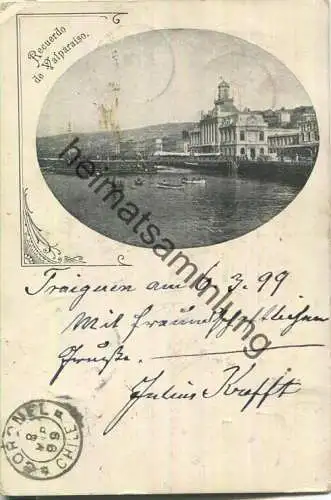 Recuerdo
de Valparaiso.
heimatsammlung.de
Traiguen am 6. 3. 99
Mit freundschaftlichen
Grüße.
Julius Krafft
CORONEL
8
99
CHILE